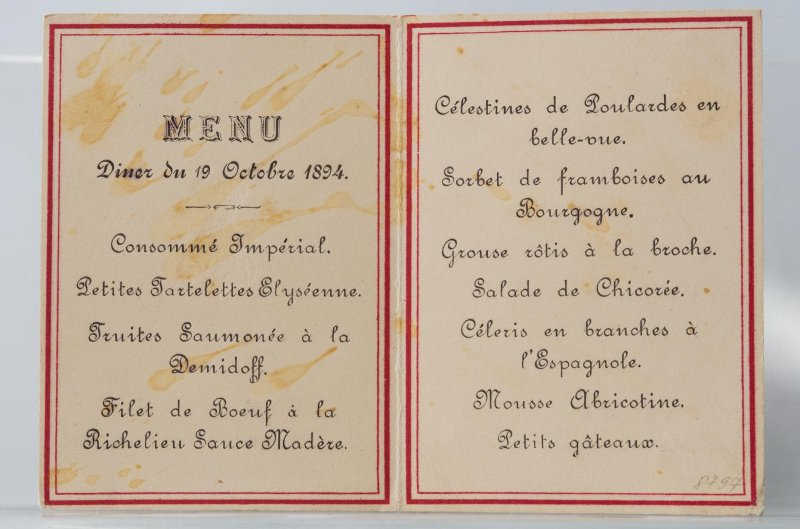 MENU
Diner du 19 Octobre 1894.
Consommé Impérial.
Petites Tartelettes Elyséenne.
Truites Saumonée à la
Demidoff.
Filet de Boeuf à la
Richelieu Sauce Madère.
Célestines de Poulardes en
belle-vue.
Sorbet de framboises au
Bourgogne.
Grouse rôtis à la broche.
Salade de Chicorée.
Céleris en branches à
l'Espagnole.
Mousse Abricotine.
Petits gâteaux.